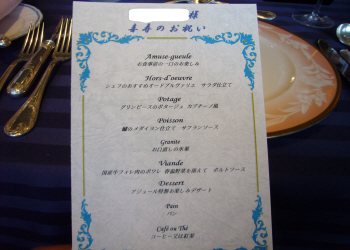 様
喜寿のお祝い
Amuse-gueule
お食事前の一口のお楽しみ
Hors-d'oeuvre
シェフのおすすめオードブルヴァリエ サラダ仕立て
Potage
グリンピースのポタージュ カプチーノ風
Poisson
鱸のメダイヨン仕立て サフランソース
Granite
お口直しの氷菓
Viande
国産牛フィレ肉のポワレ 春温野菜を添えて ポルトソース
Dessert
アジュール特製お楽しみデザート
Pain
パン
Café ou Thé
コーヒー又は紅茶